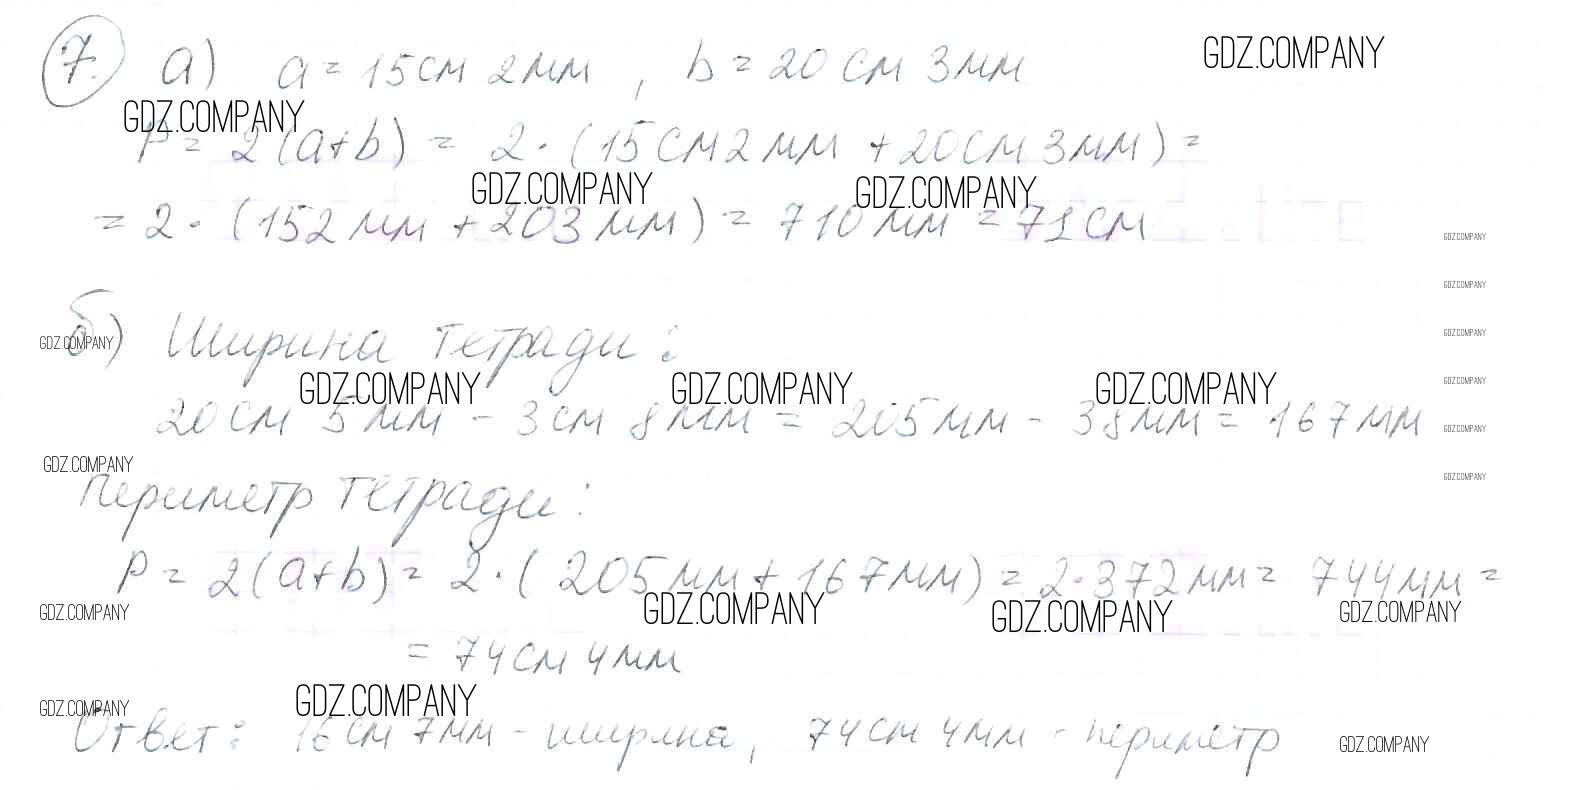 7. а) a = 15 см 2 мм , b = 20 см 3 мм
GDZ.COMPANY
GDZ.COMPANY
P = 2(a+b) = 2 · (15 см 2 мм + 20 см 3 мм) =
GDZ.COMPANY GDZ.COMPANY
= 2 · (152 мм + 203 мм) = 710 мм = 71 см
GDZ.COMPANY
GDZ.COMPANY
б) Ширина тетради :
GDZ.COMPANY GDZ.COMPANY
GDZ.COMPANY GDZ.COMPANY GDZ.COMPANY GDZ.COMPANY
20 см 5 мм - 3 см 8 мм = 205 мм - 38 мм = 167 мм
GDZ.COMPANY
GDZ.COMPANY GDZ.COMPANY
Периметр тетради :
P = 2(a+b) = 2 · ( 205 мм + 167 мм) = 2 · 372 мм = 744 мм =
GDZ.COMPANY GDZ.COMPANY GDZ.COMPANY GDZ.COMPANY
= 74 см 4 мм
GDZ.COMPANY GDZ.COMPANY
Ответ : 16 см 7 мм - ширина, 74 см 4 мм - периметр
GDZ.COMPANY